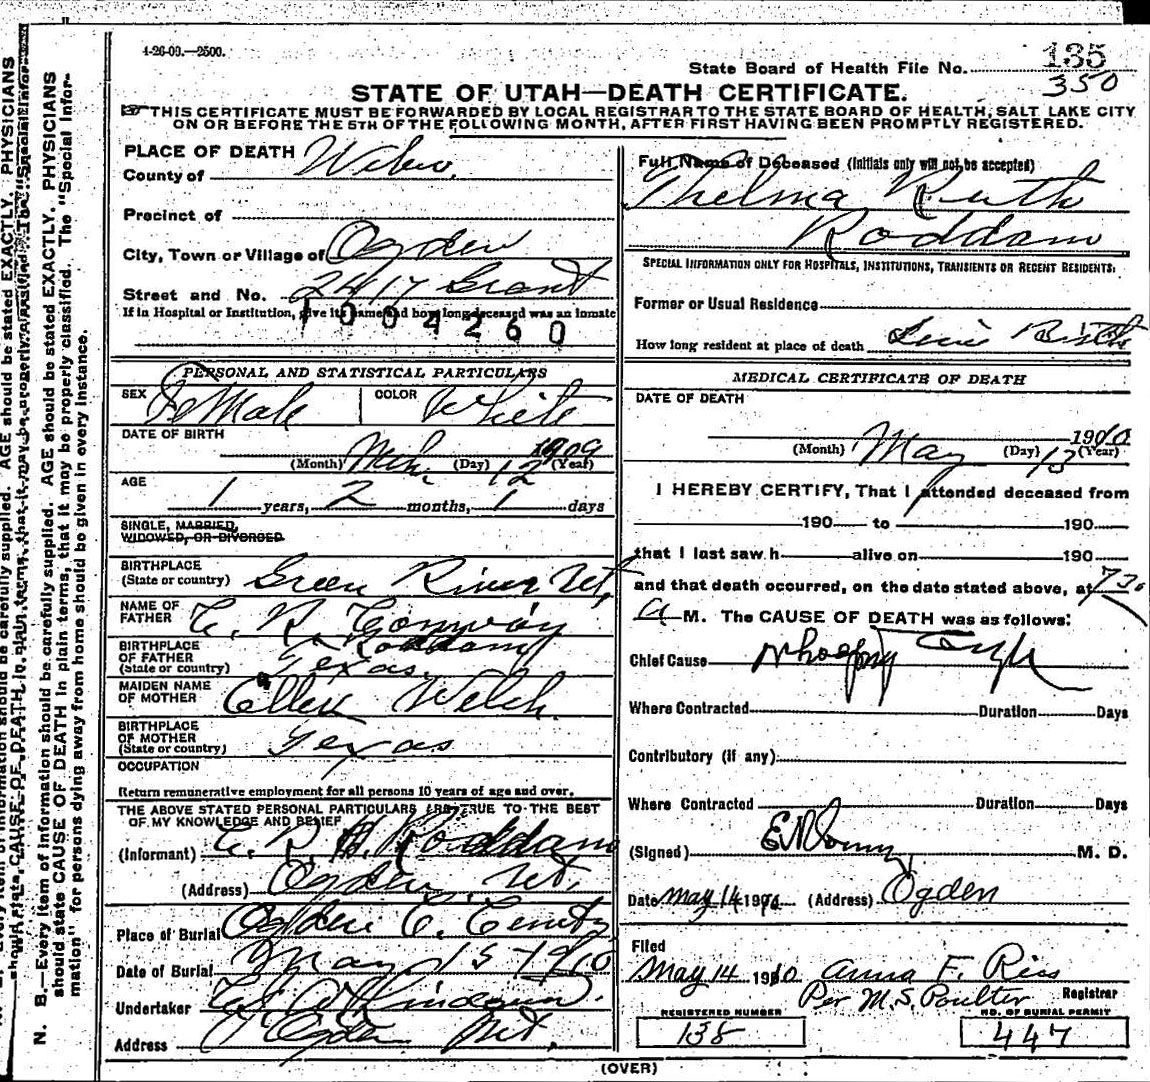 4-26-09.—2500.
State Board of Health File No. 135
350
STATE OF UTAH—DEATH CERTIFICATE.
THIS CERTIFICATE MUST BE FORWARDED BY LOCAL REGISTRAR TO THE STATE BOARD OF HEALTH, SALT LAKE CITY
ON OR BEFORE THE 5TH OF THE FOLLOWING MONTH, AFTER FIRST HAVING BEEN PROMPTLY REGISTERED.
PLACE OF DEATH
County of Weber.
Precinct of
City, Town or Village of Ogden
Street and No. 2417 Grant
If in Hospital or Institution, give its name and how long deceased was an inmate
1004260
PERSONAL AND STATISTICAL PARTICULARS
SEX FeMale COLOR White
DATE OF BIRTH
1909
(Month) Mch. (Day) 12 (Year)
AGE
1 years, 2 months, 1 days
SINGLE, MARRIED,
WIDOWED, OR DIVORCED
BIRTHPLACE
(State or country) Green River Ut,
NAME OF
FATHER C. R. Conway
Roddam
BIRTHPLACE
OF FATHER
(State or country) Texas.
MAIDEN NAME
OF MOTHER Ellen Welch.
BIRTHPLACE
OF MOTHER
(State or country) Texas
OCCUPATION
Return remunerative employment for all persons 10 years of age and over.
THE ABOVE STATED PERSONAL PARTICULARS ARE TRUE TO THE BEST
OF MY KNOWLEDGE AND BELIEF
(Informant) C. R. Roddam
(Address) Ogden, Ut,
Place of Burial Ogden C. Cemty
Date of Burial May 15 1910
Undertaker
Address Ogden Ut.
Full Name of Deceased (Initials only will not be accepted)
Thelma Ruth
Roddam
SPECIAL INFORMATION ONLY FOR HOSPITALS, INSTITUTIONS, TRANSIENTS OR RECENT RESIDENTS:
Former or Usual Residence
How long resident at place of death Since Birth
MEDICAL CERTIFICATE OF DEATH
DATE OF DEATH
1910
(Month) May (Day) 13 (Year)
I HEREBY CERTIFY, That I attended deceased from
190 to 190
that I last saw h alive on 190
and that death occurred, on the date stated above, at 7 30
a M. The CAUSE OF DEATH was as follows:
Chief Cause Whooping Cough
Where Contracted Duration Days
Contributory (if any)
Where Contracted Duration Days
(Signed) M. D.
Date May 14 1910 (Address) Ogden
Filed
May 14 1910 Anna F. Ries
Per M.S. Poulter Registrar
REGISTERED NUMBER
138
NO. OF BURIAL PERMIT
447
(OVER)
N. B.—Every item of information should be carefully supplied. AGE should be stated EXACTLY. PHYSICIANS
should state CAUSE OF DEATH in plain terms, that it may be properly classified. The "Special Infor-
mation" for persons dying away from home should be given in every instance.